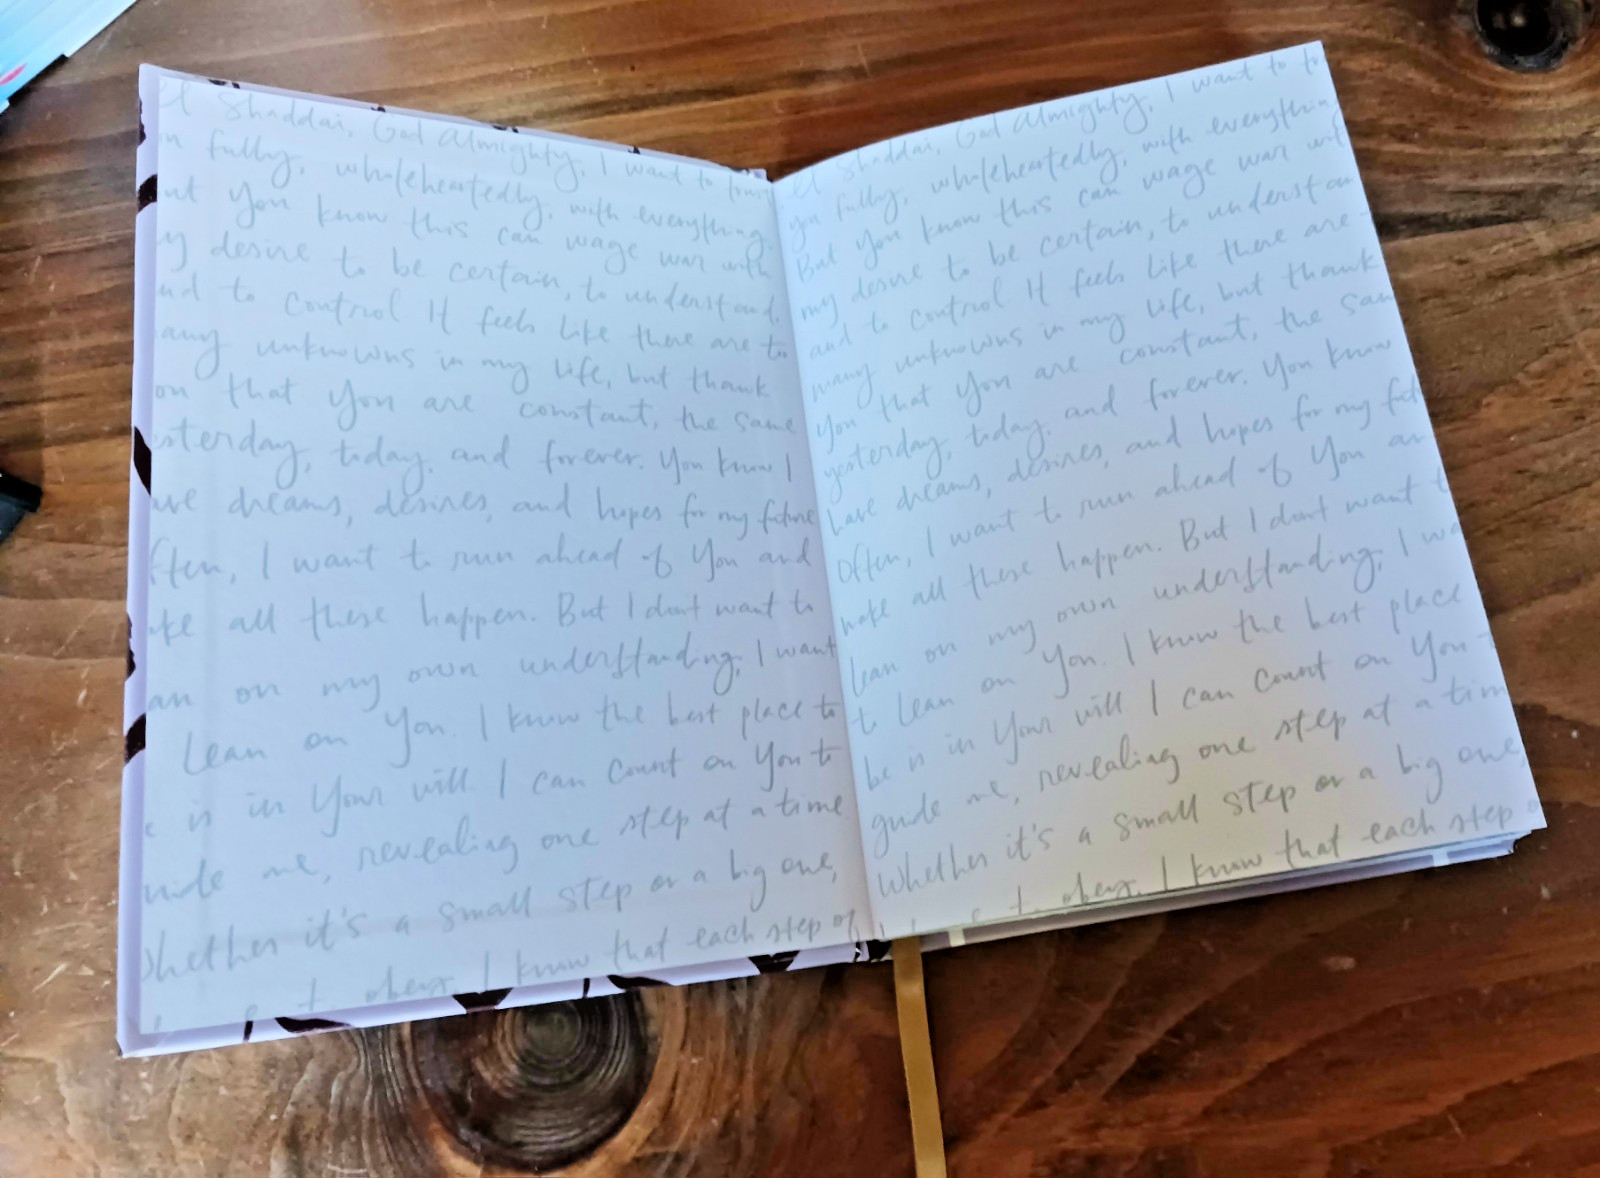 Shaddai, God Almighty, I want to
fully, wholeheartedly, with everything.
You know this can wage war with
desire to be certain, to understand,
to control It feels like there are to
unknowns in my life, but thank
that You are constant, the same
sterday, today, and forever. You know I
ave dreams, desires, and hopes for my future
ften, I want to run ahead of You and
ake all these happen. But I dont want to
an on my own understanding, I want
lean on You. I know the best place to
is in Your will I can count on You to
uide me, revealing one step at a time
Whether it's a small step or a big one,
to obey. I know that each step of
Shaddai, God Almighty, I want to
you fully, wholeheartedly, with everything
But You know this can wage war with
my desire to be certain, to understan
and to control It feels like there are
many unknowns in my life, but thank
You that You are constant, the sam
yesterday, today, and forever. You know
have dreams, desires, and hopes for my fut
Often, I want to run ahead of You an
make all these happen. But I dont want t
lean on my own understanding, I wa
to lean on You. I know the best place
be is in Your will I can count on You
guide me, revealing one step at a tim
Whether it's a small step or a big one,
to obey. I know that each step o